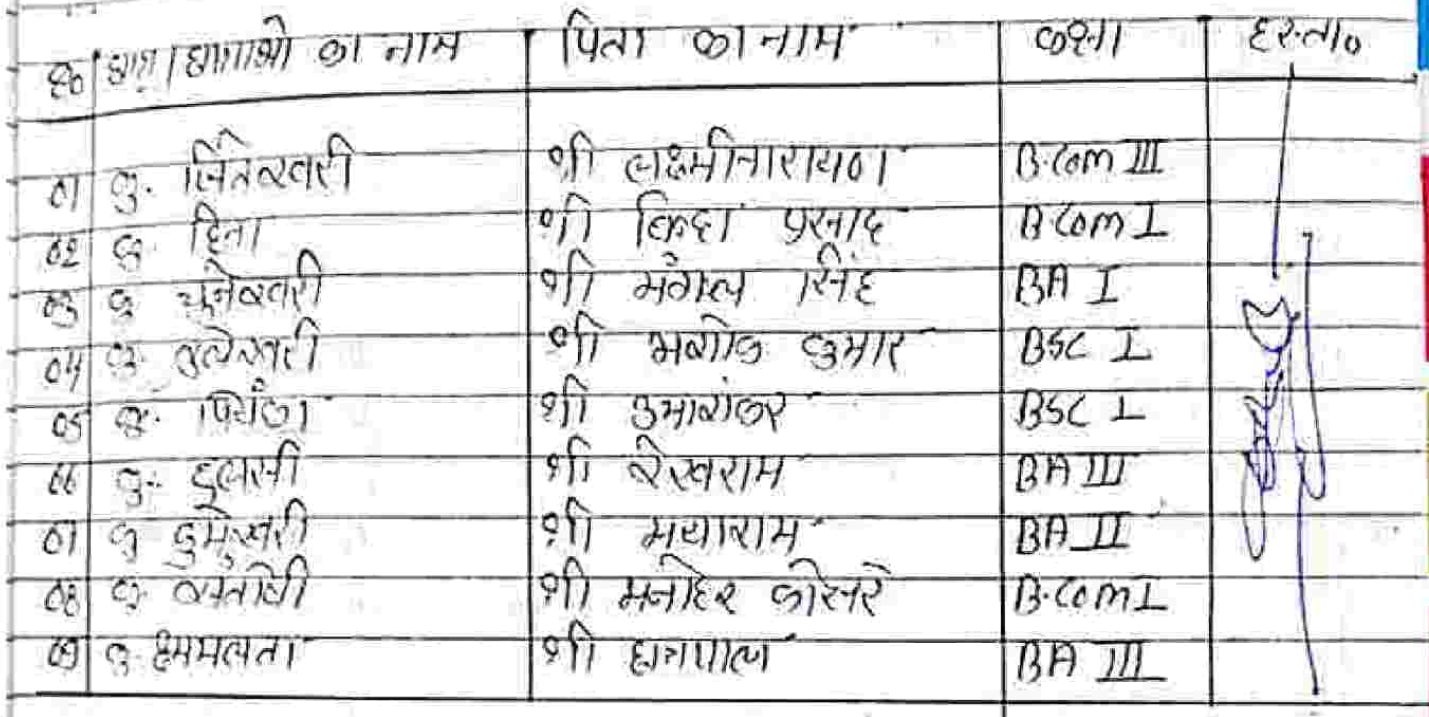 क्र० छात्र/छात्राओ का नाम पिता का नाम कक्षा हस्ता०
01 कु. जितेश्वरी श्री लक्ष्मीनारायण B.Com III
02 कु. हिना श्री प्रसाद B.Com I
03 कु चुनेश्वरी श्री मंगल सिंह BA I
04 कु. तुलेश्वरी श्री अशोक कुमार BSC I
05 कु. प्रियंका श्री उमाशंकर BSC I
06 कु. तुलसी श्री शेखराम BA III
07 कु दुमेश्वरी श्री मयाराम BA II
08 कु. श्री मनोहर कोसरे B.Com I
09 कु. श्री BA III